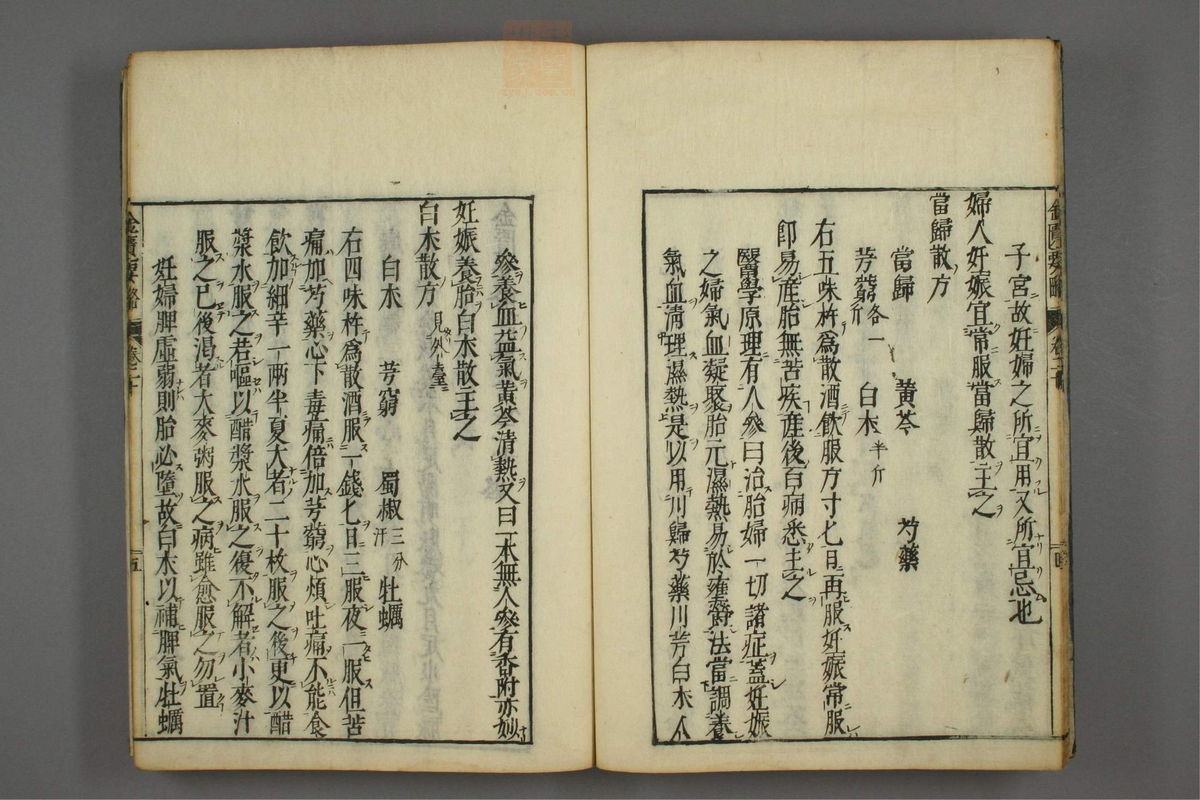 子宮故妊婦之所宜用又所宜忌也
婦人妊娠宜常服當歸散主之
當歸散方
當歸 黃芩 芍藥
芎藭各一斤 白朮半斤
右五味杵為散酒飲服方寸匕日再服妊娠常服
卽易產胎無苦疾產後百病悉主之
醫學原理有人參曰治胎婦一切諸症蓋妊娠
之婦氣血凝聚胎元濕熱易於壅欝法當調養
氣血清理濕熱是以用川歸芍藥川芎白朮人
參養血益氣黃芩清熱又曰一本無人參有香附亦妙
妊娠養胎白朮散主之
白朮散方見外臺
白朮 芎藭 蜀椒三分汗 牡蠣
右四味杵為散酒服一錢匕日三服夜一服但苦
痛加芍藥心下毒痛倍加芎藭心煩吐痛不能食
飲加細辛一兩半夏大者二十枚服之後更以醋
漿水服之若嘔以醋漿水服之復不解者小麥汁
服之已後渴者大麥粥服之病雖愈服之勿置
妊婦脾虛弱則胎必墮故白朮以補脾氣牡蠣
金匱要略
卷二十
五
金匱要略
四